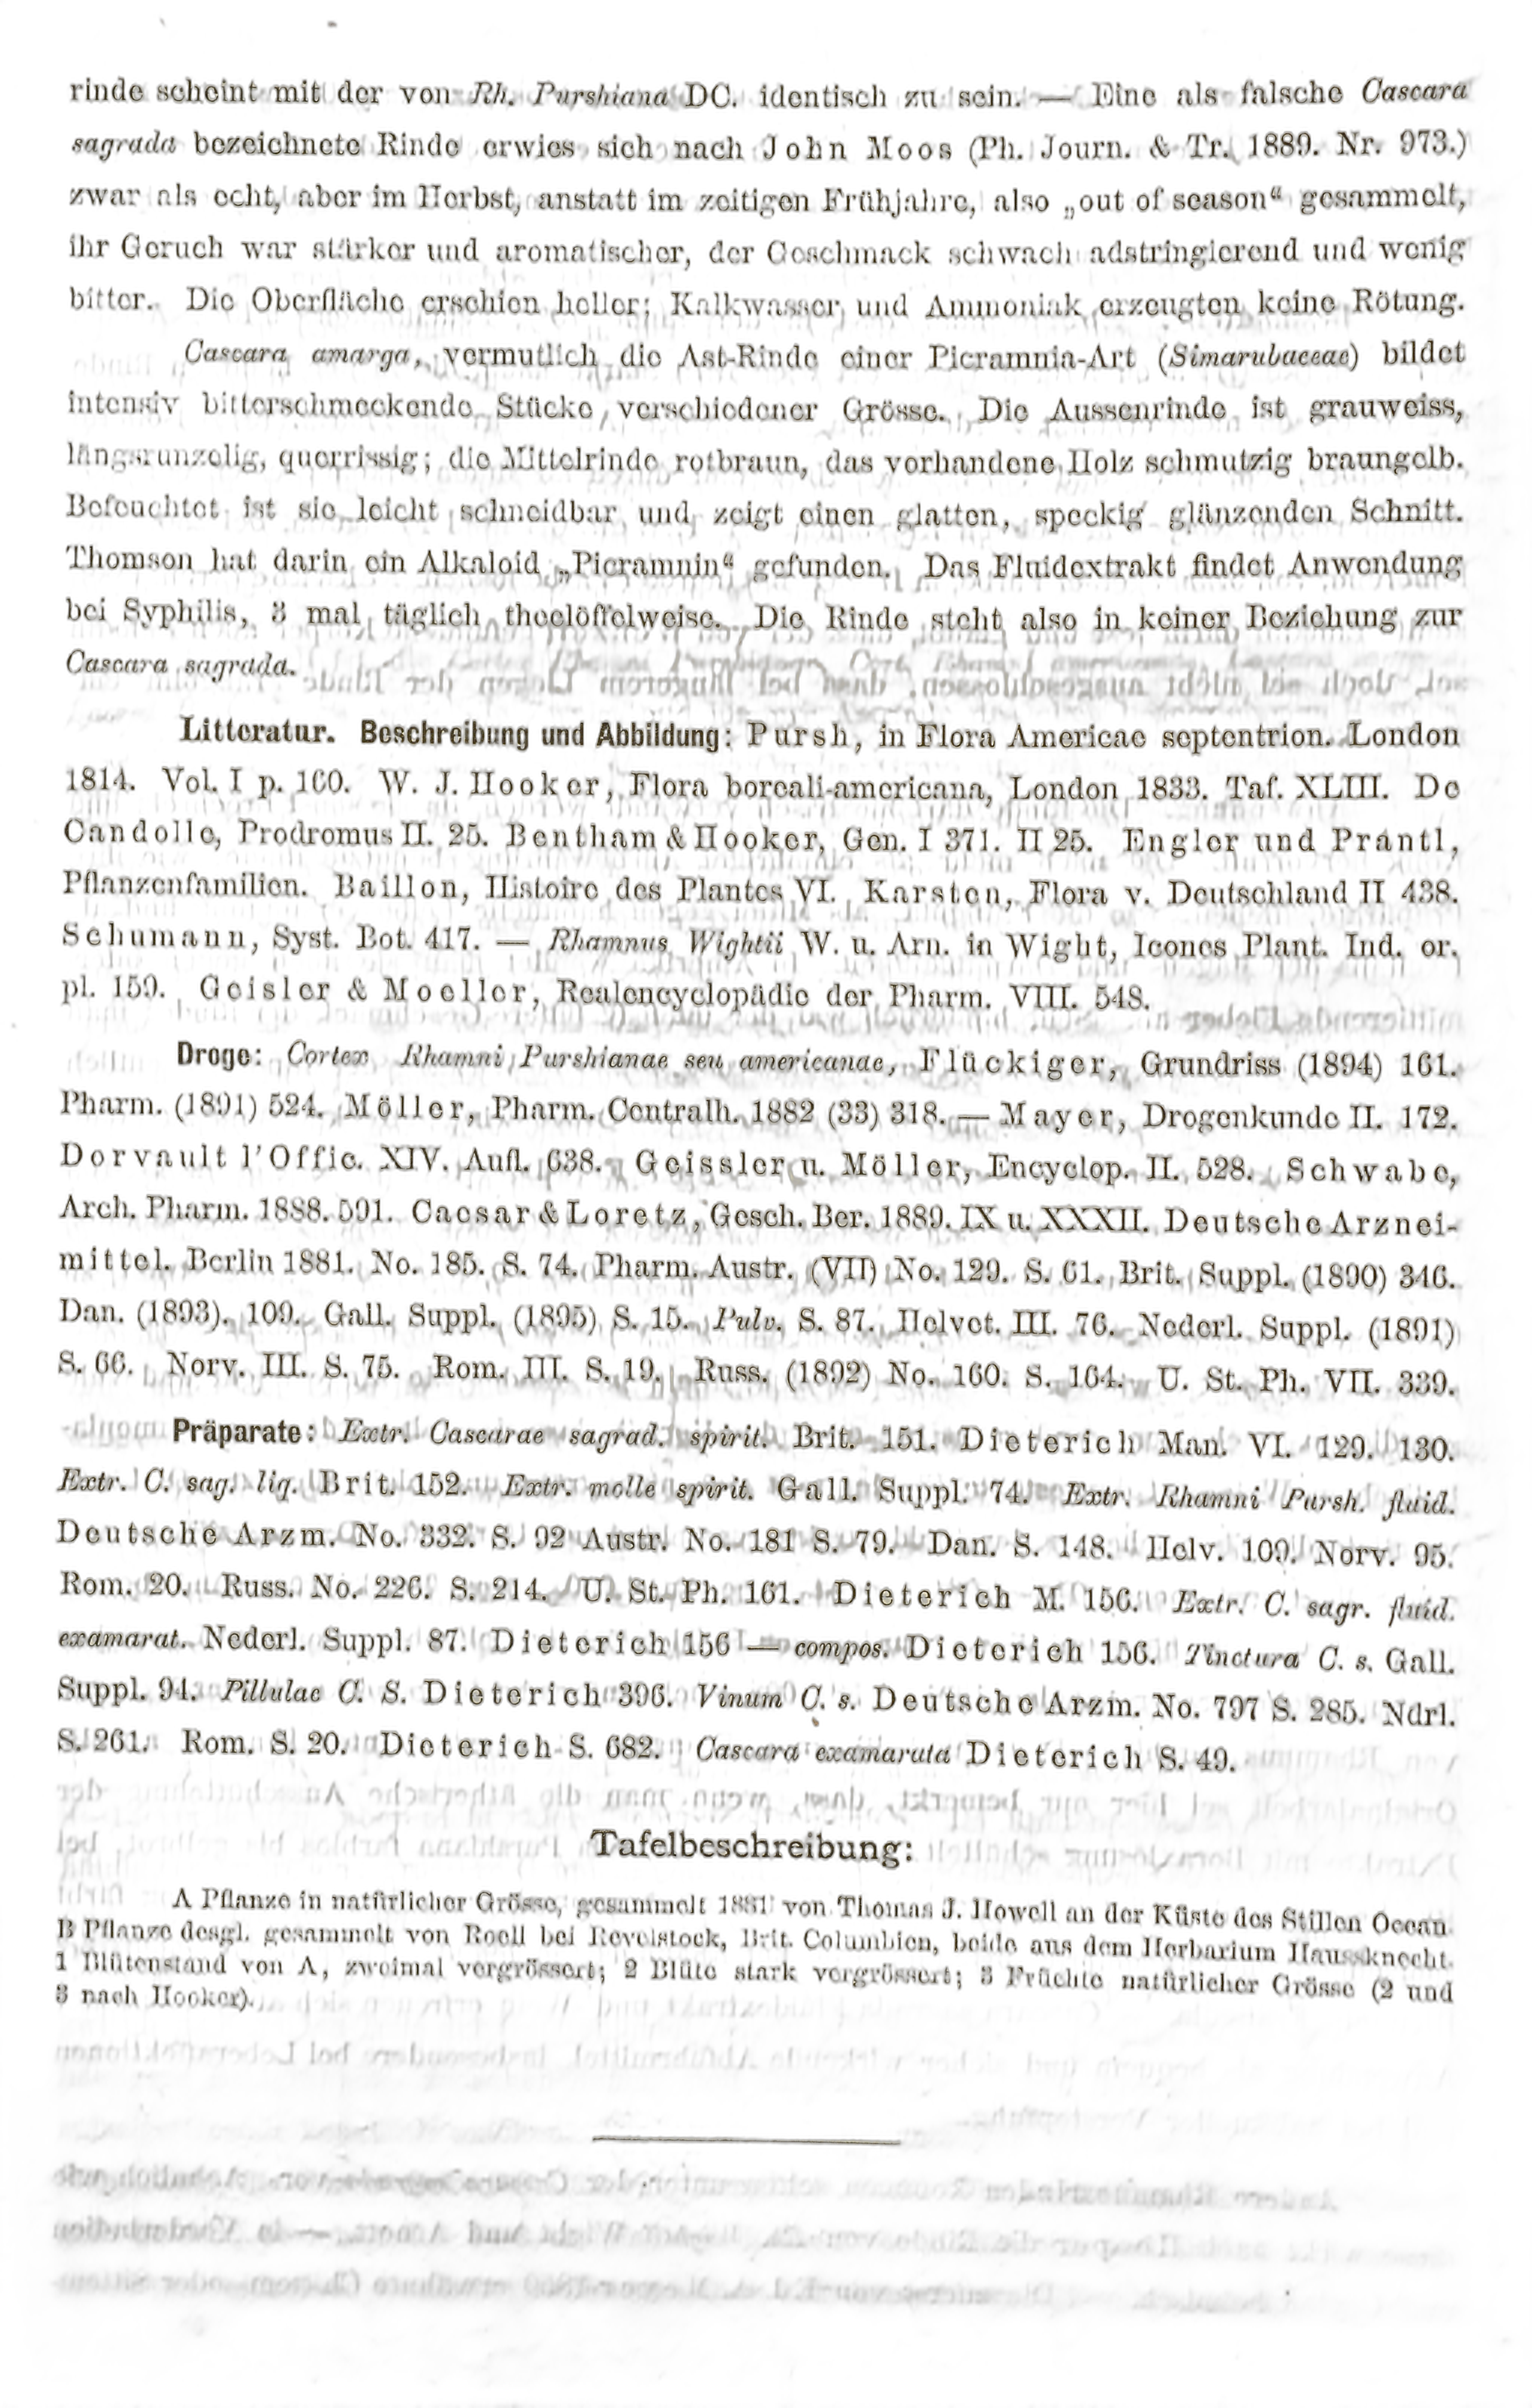 rinde scheint mit der von Rh. Purshiana DC. identisch zu sein. — Eine als falsche Cascara
sagrada bezeichnete Rinde erwies sich nach John Moos (Ph. Journ. & Tr. 1889. Nr. 973.)
zwar als echt, aber im Herbst, anstatt im zeitigen Frühjahre, also „out of season“ gesammelt,
ihr Geruch war stärker und aromatischer, der Geschmack schwach adstringierend und wenig
bitter. Die Oberfläche erschien heller; Kalkwasser und Ammoniak erzeugten keine Rötung.
Cascara amarga, vermutlich die Ast-Rinde einer Picramnia-Art (Simarubaceae) bildet
intensiv bitterschmeckende Stücke verschiedener Grösse. Die Aussenrinde ist grauweiss,
längsrunzelig, querrissig; die Mittelrinde rotbraun, das vorhandene Holz schmutzig braungelb.
Befeuchtet ist sie leicht schneidbar und zeigt einen glatten, speckig glänzenden Schnitt.
Thomson hat darin ein Alkaloid „Picramnin“ gefunden. Das Fluidextrakt findet Anwendung
bei Syphilis, 3 mal täglich theelöffelweise. Die Rinde steht also in keiner Beziehung zur
Cascara sagrada.
Litteratur. Beschreibung und Abbildung: Pursh, in Flora Americae septentrion. London
1814. Vol. I p. 160. W. J. Hooker, Flora boreali-americana, London 1833. Taf. XLIII. De
Candolle, Prodromus II. 25. Bentham & Hooker, Gen. I 371. II 25. Engler und Prantl,
Pflanzenfamilien. Baillon, Histoire des Plantes VI. Karsten, Flora v. Deutschland II 438.
Schumann, Syst. Bot. 417. — Rhamnus Wightii W. u. Arn. in Wight, Icones Plant. Ind. or.
pl. 159. Geisler & Moeller, Realencyclopädie der Pharm. VIII. 548.
Droge: Cortex Rhamni Purshianae seu americanae, Flückiger, Grundriss (1894) 161.
Pharm. (1891) 524. Möller, Pharm. Centralh. 1882 (33) 318. — Mayer, Drogenkunde II. 172.
Dorvault l'Offic. XIV. Aufl. 638. Geissler u. Möller, Encyclop. II. 528. Schwabe,
Arch. Pharm. 1888. 591. Caesar & Loretz, Gesch. Ber. 1889. IX u. XXXII. Deutsche Arznei-
mittel. Berlin 1881. No. 185. S. 74. Pharm. Austr. (VII) No. 129. S. 61. Brit. Suppl. (1890) 346.
Dan. (1893). 109. Gall. Suppl. (1895) S. 15. Pulv. S. 87. Helvet. III. 76. Nederl. Suppl. (1891)
S. 66. Norv. III. S. 75. Rom. III. S. 19. Russ. (1892) No. 160. S. 164. U. St. Ph. VII. 339.
Präparate: Extr. Cascarae sagrad. spirit. Brit. 151. Dieterich Man. VI. 129. 130.
Extr. C. sag. liq. Brit. 152. Extr. molle spirit. Gall. Suppl. 74. Extr. Rhamni Pursh. fluid.
Deutsche Arzm. No. 332. S. 92 Austr. No. 181 S. 79. Dan. S. 148. Helv. 109. Norv. 95.
Rom. 20. Russ. No. 226. S. 214. U. St. Ph. 161. Dieterich M. 156. Extr. C. sagr. fluid.
examarat. Nederl. Suppl. 87. Dieterich 156 — compos. Dieterich 156. Tinctura C. s. Gall.
Suppl. 94. Pillulae C. S. Dieterich 396. Vinum C. s. Deutsche Arzm. No. 797 S. 285. Ndrl.
S. 261. Rom. S. 20. Dieterich S. 682. Cascara examarata Dieterich S. 49.
Tafelbeschreibung:
A Pflanze in natürlicher Grösse, gesammelt 1881 von Thomas J. Howell an der Küste des Stillen Ocean
B Pflanze desgl. gesammelt von Roell bei Revelstock, Brit. Columbien, beide aus dem Herbarium Haussknecht.
1 Blütenstand von A, zweimal vergrössert; 2 Blüte stark vergrössert; 3 Früchte natürlicher Grösse (2 und
3 nach Hooker).